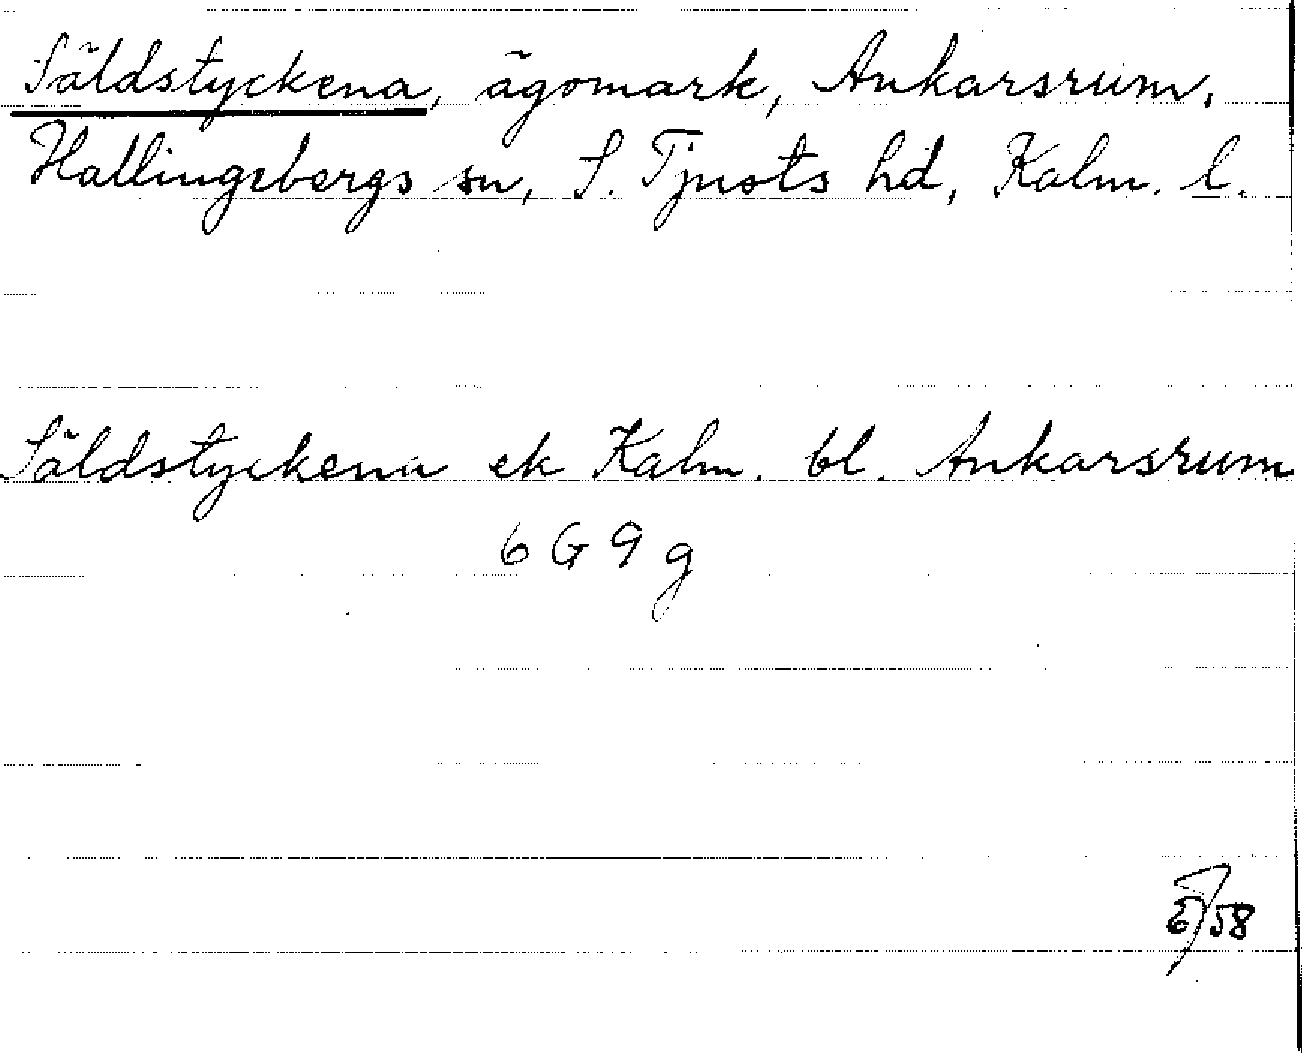 Säldstyckena, ägomark, Ankarsrum,
Hallingebergs sn, S. Tjusts hd, Kalm. l.
Säldstyckena ek Kalm. bl. Ankarsrum
6 G 9 g
58